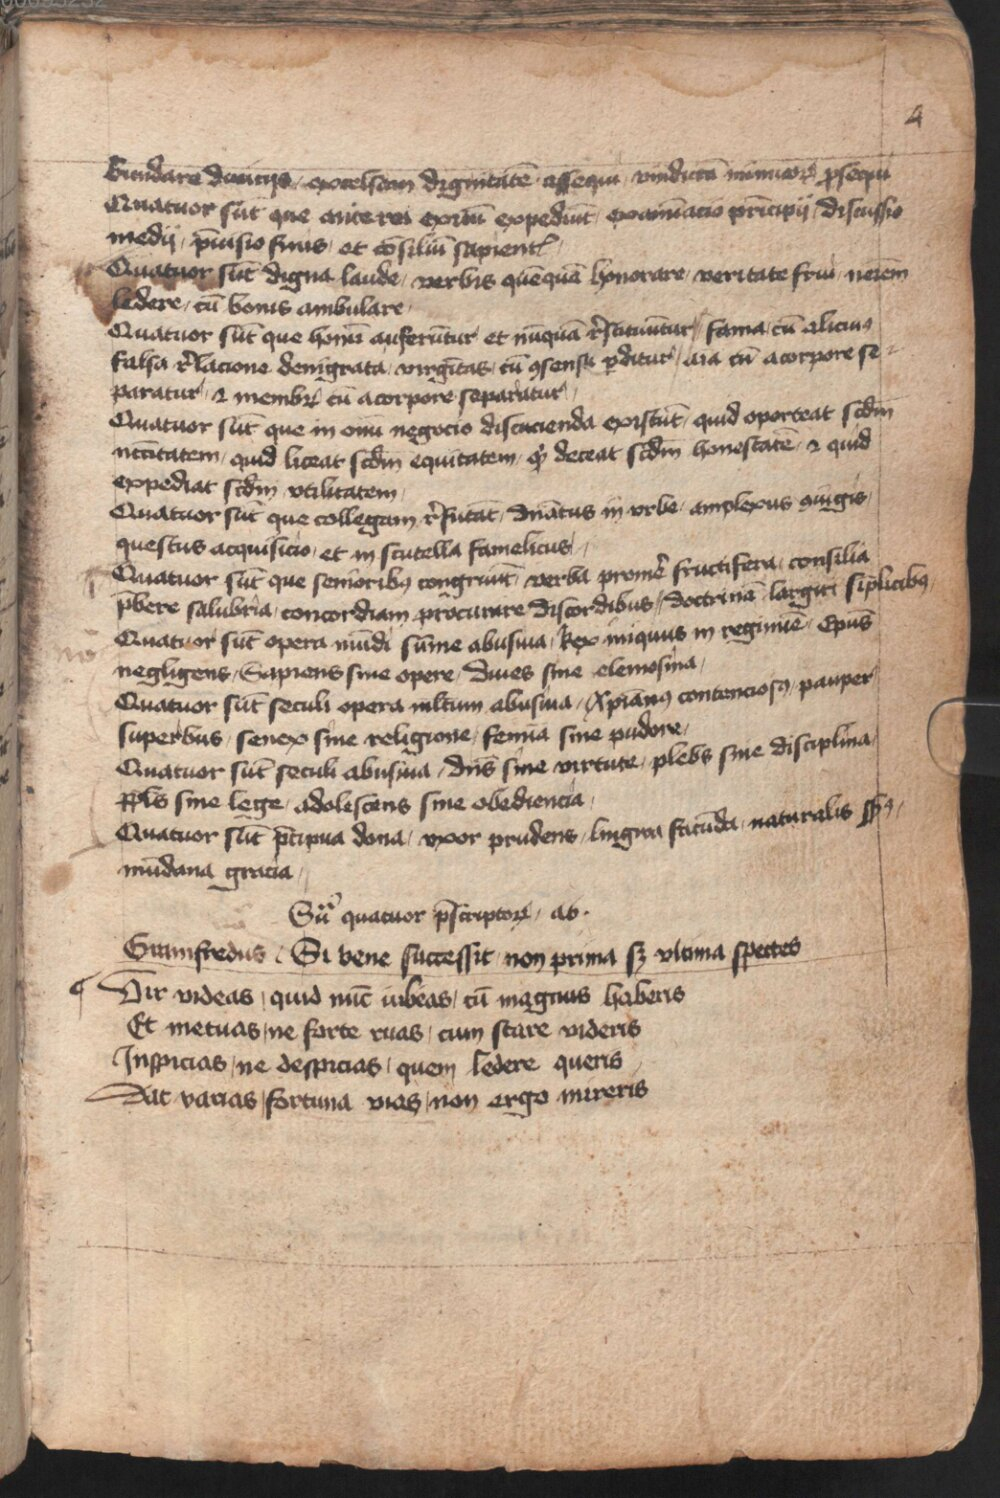 4
bundare diuicijs / excelsam dignitatē assequi / vindictā inimicoꝝ ꝓsequi
Quatuor sūt que ante rei exitū expediūt / examīacio prīcipij / discussio
medij / p̄uisio finis / et cōsiliū sapient
Quatuor sūt digna laude / verbis quēquā honorare / veritate frui / nemēm
ledere / cū bonis ambulare /
Quatuor sūt que homī auferūtur et nūquā rͤstituūtur / fama cū alicuiꝰ
falsa rͤlacione denigrata / virgītas / cū ꝯsensu ꝑditur / aīa cū a corpore se
paratur / ⁊ membrꝝ cū a corpore separatur /
Quatuor sūt que in omī negocio discucienda existūt / quid oporteat scdm̄
nccītatem / quid liceat scdm̄ equitatem / qͥ deceat scdm̄ honestatē / ⁊ quid
expediat scdm̄ vtilitatem /
Quatuor sūt que collegam rͤfutāt / dn̄atus in vrbe / amplexus ꝯiugis /
questus acquisicio / et in scutella famelicus /
Quatuor sūt que senioribꝰ congruūt / verba promēͬ fructifera / consilia
p̄bere salubria / concordiam procurare discordibus / doctrinā largiri siplicibꝰ
Quatuor sūt opera mūdi sūme abusiua / Rex iniquus in regimīe / Ep̄us
negligens / Sapiens sine opere / diues sine elemosina /
Quatuor sūt seculi opera ml̄tum abusiua / Xp̄ianꝰ contenciosꝰ / pauper
superbus / senex sine religione / femīa sine pudore /
Quatuor sūt seculi abusiua / dn̄s sine virtute / plebs sine disciplina
ppls sine lege / adolescens sine obediencia /
Quatuor sūt p̄cipua dona / vxor prudens / lingwa facūda / naturalis
mūdana gracia /
quatuor p̄scriptoꝝ / ab.
Gamfredus / Si bene successit non prima sꝫ vltima spectes
Vir videas / quid nūc iubeas / cū magnus haberis
Et metuas / ne forte ruas / cum stare videris
Inspicias / ne despicias / quem ledere queris
Dat varias / fortuna vias / non ergo mireris